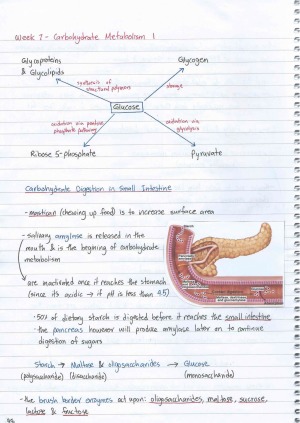 Week 7 - Carbohydrate Metabolism 1
Glycoproteins
& Glycolipids
Glycogen
synthesis of
structural polymers
storage
Glucose
oxidation via pentose
phosphate pathway
oxidation via
glycolysis
Ribose 5-phosphate
Pyruvate
Carbohydrate Digestion in Small Intestine
- mastication (chewing up food) is to increase surface area
- salivary amylase is released in the
mouth & is the beginning of carbohydrate
metabolism
are inactivated once it reaches the stomach
(since its acidic → if pH is less than 4.5)
· 50% of dietary starch is digested before it reaches the small intestine
· the pancreas however will produce amylase later on to continue
digestion of sugars
Starch → Maltose & oligosaccharides → Glucose
(polysaccharide) (disaccharide) (monosaccharide)
- the brush border enzymes act upon: oligosaccharides, maltose, sucrose,
lactose & fructose